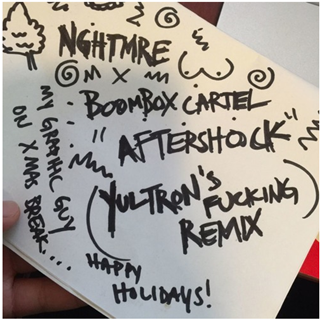 NGHTMRE
X
BOOMBOX CARTEL
"AFTERSHOCK"
(YULTRON'S
FUCKING
REMIX)
HAPPY
HOLIDAYS!
MY GRAPHIC GUY
ON XMAS BREAK....